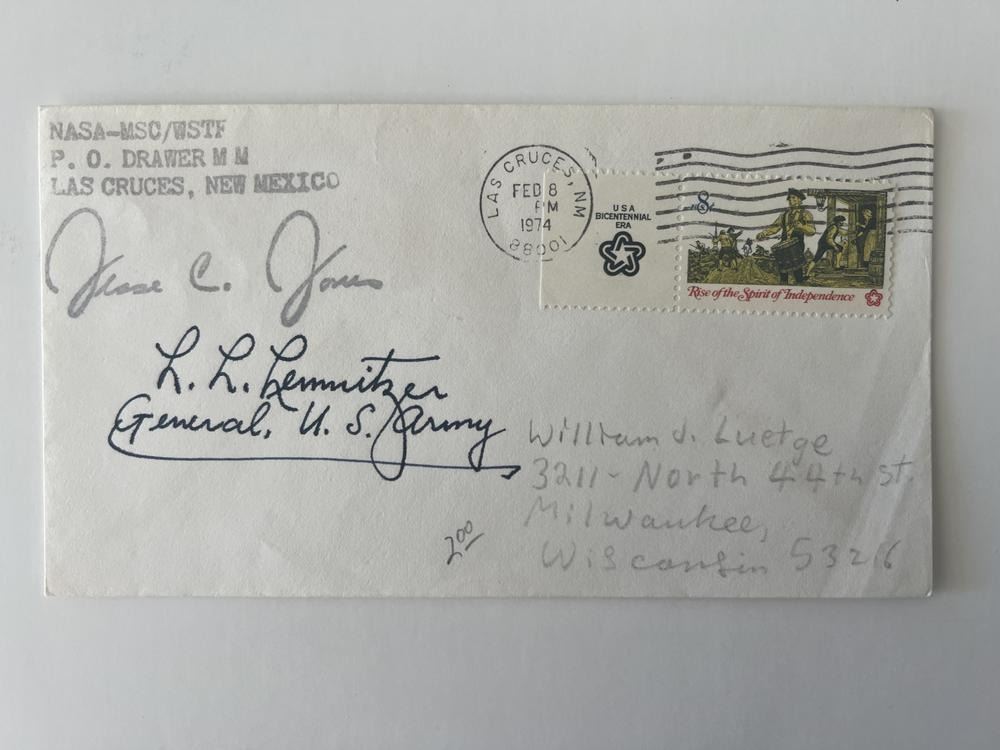 NASA-MSC/WSTF
P. O. DRAWER M M
LAS CRUCES, NEW MEXICO
LAS CRUCES, NM
FEB 8
PM
1974
88001
USA
BICENTENNIAL
ERA
8¢
Rise of the Spirit of Independence
Jesse C. Jones
L. L. Lemnitzer
General, U. S. Army
William J. Luetge
3211 - North 44th St.
Milwaukee,
Wisconsin 53216
2.00